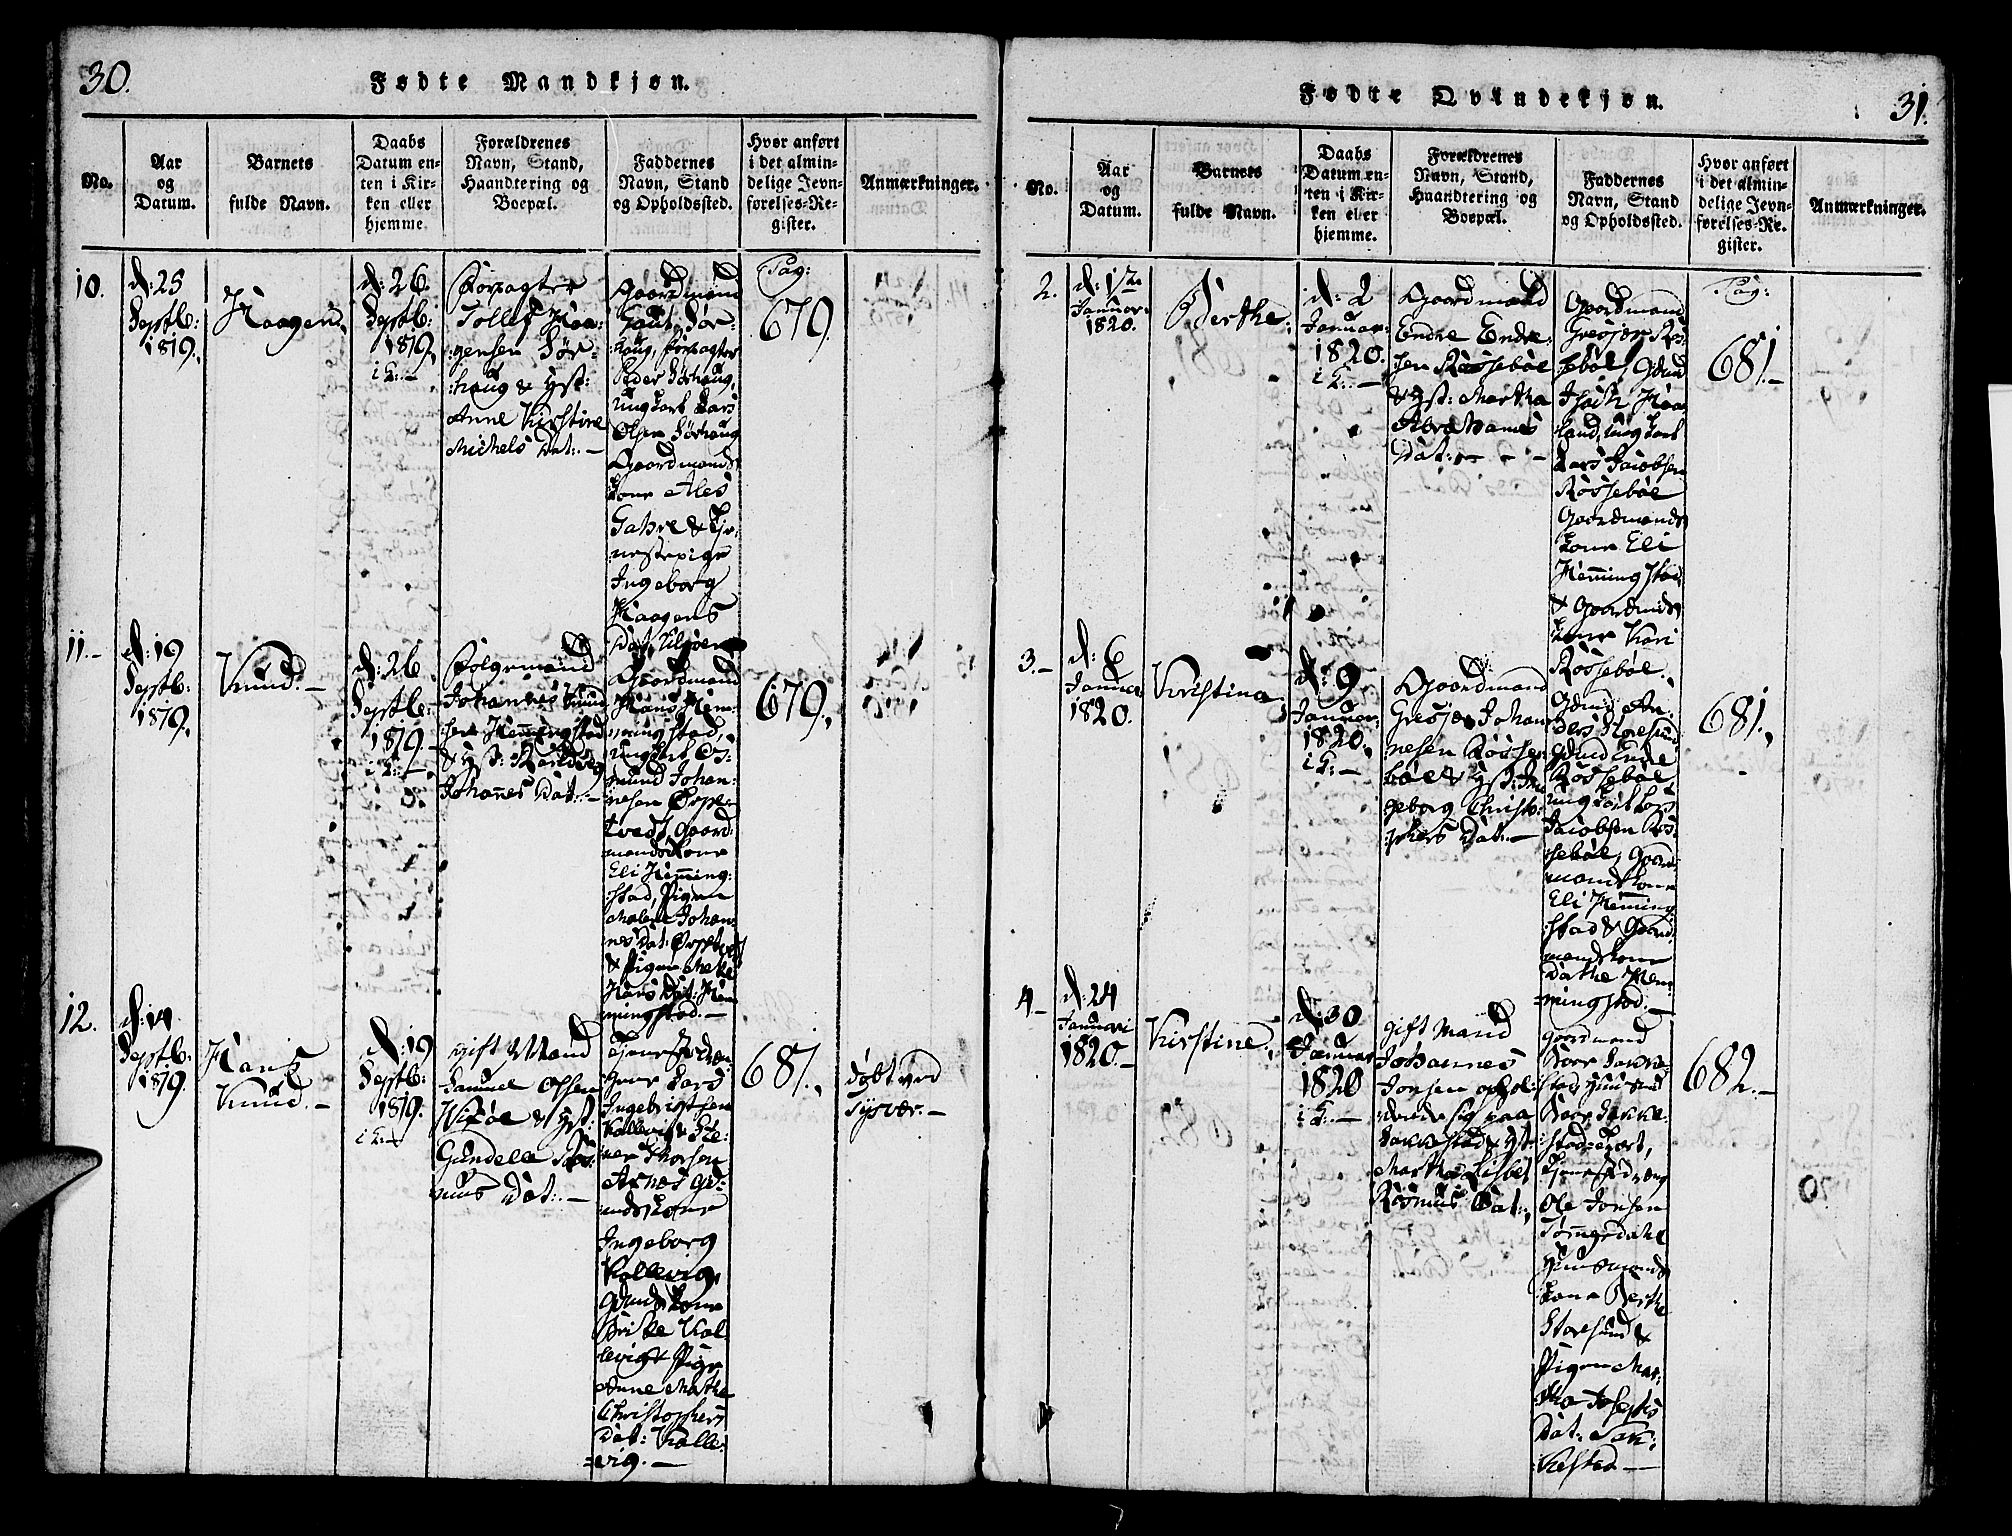 30.
Fødte Mandkjøn.
No.
Aar
og
Datum.
Barnets
fulde Navn.
Daabs
Datum en-
ten i Kir-
ken eller
hjemme.
Forældrenes
Navn, Stand,
Haandtering og
Boepæl.
Faddernes
Navn, Stand
og Opholdssted.
Hvor anført
i det almin-
delige Jevn-
førelses-Re-
gister.
Anmærkninger.
10.
d: 25
Septb:
1819.
Haagen.
d: 26.
Septb:
1819,
i K:
Forpagter
Tollef Haa-
gensen Sør-
houg & Hst:
Anne Kirstine
Michels Dat:
Gaardmand
Gaut Sør-
houg, Forpagter
Peder Sørhaug,
Ungkarl Lars
Olsen Sørhaug
Gaardmands
kone Ales
& Tje-
nestepige
Ingeborg
Haagens
Dat.
Pag:
679.
11.
d: 19
Septb:
1819.
Knud.
d: 26
Septb:
1819.
i K:
Johannes Knud
sen Hemmingstad
& Hst:
Johannes Dat:
Gaardmand
Hans Hem-
mingstad,
Ungkarl Os-
mund Johan-
nesen
Gaard-
mandskone
Eli Hemming-
stad, Pigen
Malene Johan-
nes Dat:
& Pigen
Hans Dat: Hem
mingstad.
679.
12.
d: 14
Septb:
1819.
Hans
Knud.
d: 19
Septb:
1819.
i K:
gift Mand
Samuel Olsen
& Hst:
Gundelle Ras-
mus Dat:
Tjenestedreng
Lars
Ingebrigtsen
Kallevig &
Thorsen
Aarnes Gd-
mdskone
Ingeborg
Kallevig,
Gdmdskone
Kal-
levig & Pige
Anne Marthe
Christophers
Dat: Kalle-
vig.
681.
døbt ved
Tysvær.
31.
Fødte Qvindekjøn.
No.
Aar
og
Datum.
Barnets
fulde Navn.
Daabs
Datum en-
ten i Kir-
ken eller
hjemme.
Forældrenes
Navn, Stand,
Haandtering og
Boepæl.
Faddernes
Navn, Stand
og Opholdssted.
Hvor anført
i det almin-
delige Jevn-
førelses-Re-
gister.
Anmærkninger.
2.
Januar
1820.
Berthe.
d: 2
Januar
1820.
i K:
Gaardmand
Endre Endre-
sen Røssebøe
& Hst: Martha
Abrahams
Dat:
Gaardmand
Gresjer Røs-
sebøe, Gdmd
Haa-
land, Ungkarl
Lars Jacobsen
Røssebøe
Gaardmands
kone Eli
Hemmingstad
& Gaardmds
kone Kari
Røssebøe.
Pag:
681.
3.
d: 6
Januar
1820.
Kristina
d: 9
Januar
1820.
i K:
Gaardmand
Gresjer Johan-
nesen Røsse-
bøe & Hst: In-
geborg Christo-
phers Dat:
Gdmd An-
ders Storesund
Gdmd Endre
Røssebøe
Ungkarl Lars
Jacobsen Røs-
sebøe, Gaard-
mandskone
Eli Hemming
stad & Gaard-
mandskone
Dorthe Hem-
mingstad.
681.
4.
d: 24
Januari
1820.
Kirstine.
d: 30
Januar
1820
i K:
gift Mand
Johannes
Jonsen ophol-
dende sig paa
& Hst:
Martha Lisbet
Rasmus Dat:
Gaardmand
Huusmd
Tjenestedreng
Ole Jonsen
Huusmands
kone Berthe
Storesund &
Pigen Mar-
tha Josephs
Dat:
682.